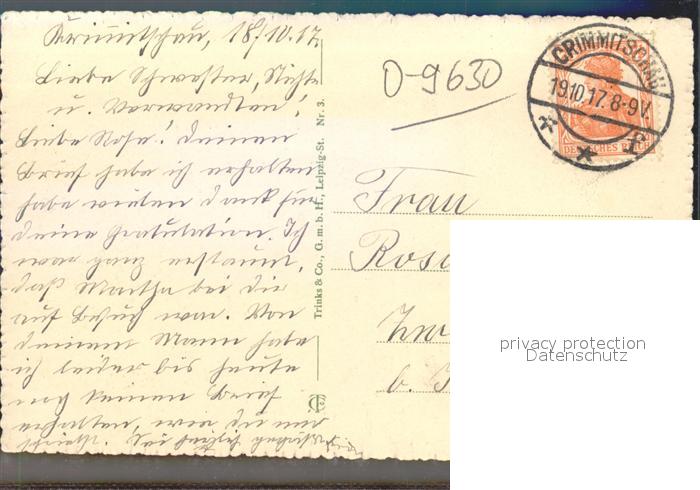 Krimmitschau, 18/10.17
Liebe Schwester, Nichte
u. Verwandten!
Liebe Rosa! Deinen
Brief habe ich erhalten
habe vielen Dank für
deine Gratulation. Ich
war ganz erstaunt,
daß Martha bei dir
auf Besuch war. Von
deinem Mann habe
ich leider bis heute
noch keinen Brief
erhalten, wie du mir
schriebst. Sei herzlich gegrüßt
Trinks & Co., G. m. b. H., Leipzig-St. Nr. 3.
0-9630
CRIMMITSCHAU
19.10.17. 8-9V.
* * f
DEUTSCHES REICH
Frau
Rosa
Zw
b.
privacy protection
Datenschutz